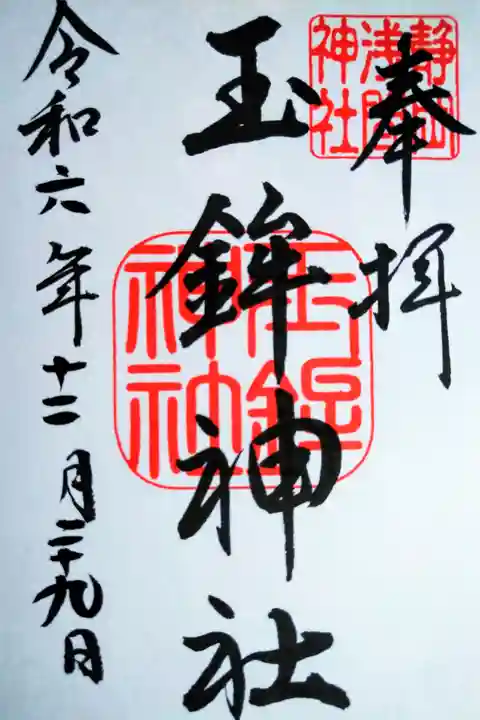 奉拝
静岡
浅間
神社
玉鉾神社
玉鉾
神社
令和六年十二月二十九日